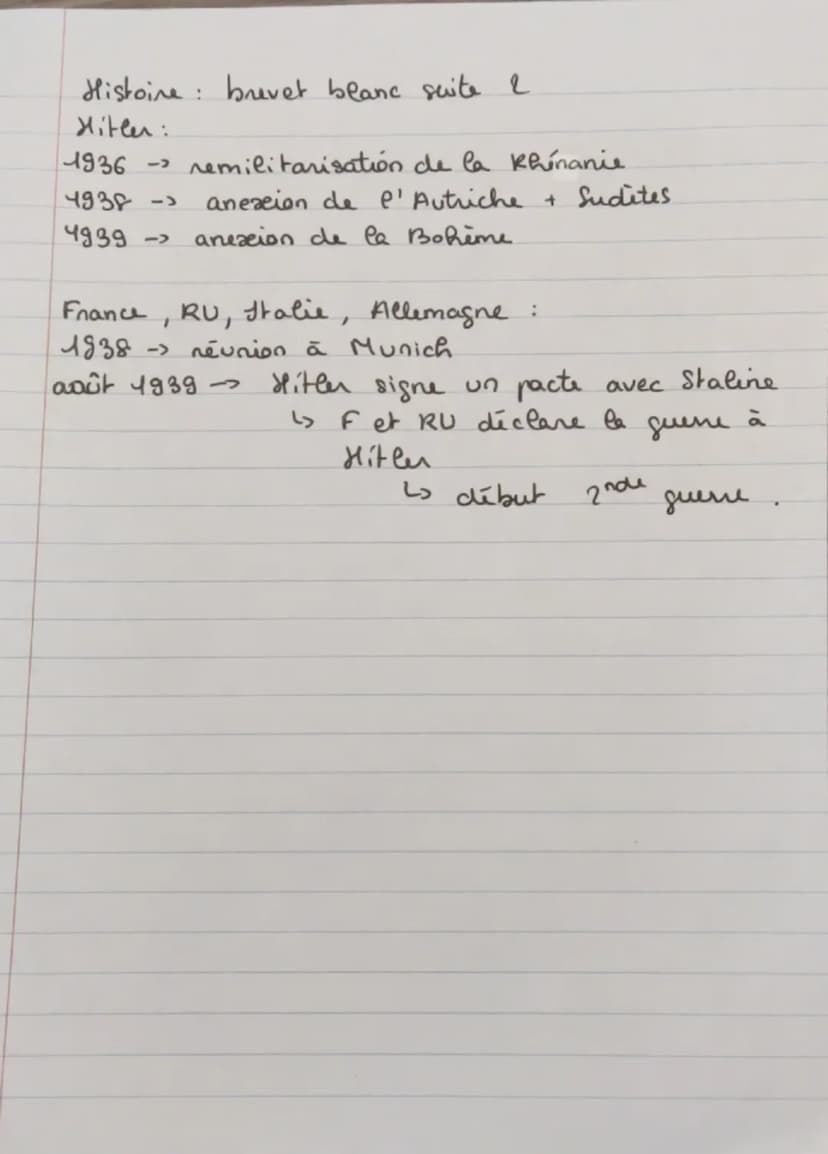 Histoire : brevet blanc suite 2
Hitler :
1936 -> remilitarisation de la Rhínanie
1938 -> anexion de l'Autriche + Sudètes
1939 -> anexion de la Bohème
France, RU, Italie, Allemagne :
1938 -> réunion à Munich
août 1939 -> Hitler signe un pacte avec Staline
↳ F et RU déclare la guerre à
Hitler
↳ début 2nde guerre.